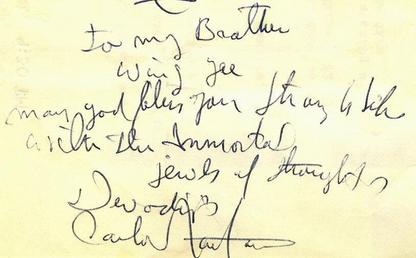 to my Brother
Wing Yee
may god bless you
with the Immortal
jewels of thoughts
Devadip
Carlos Santana